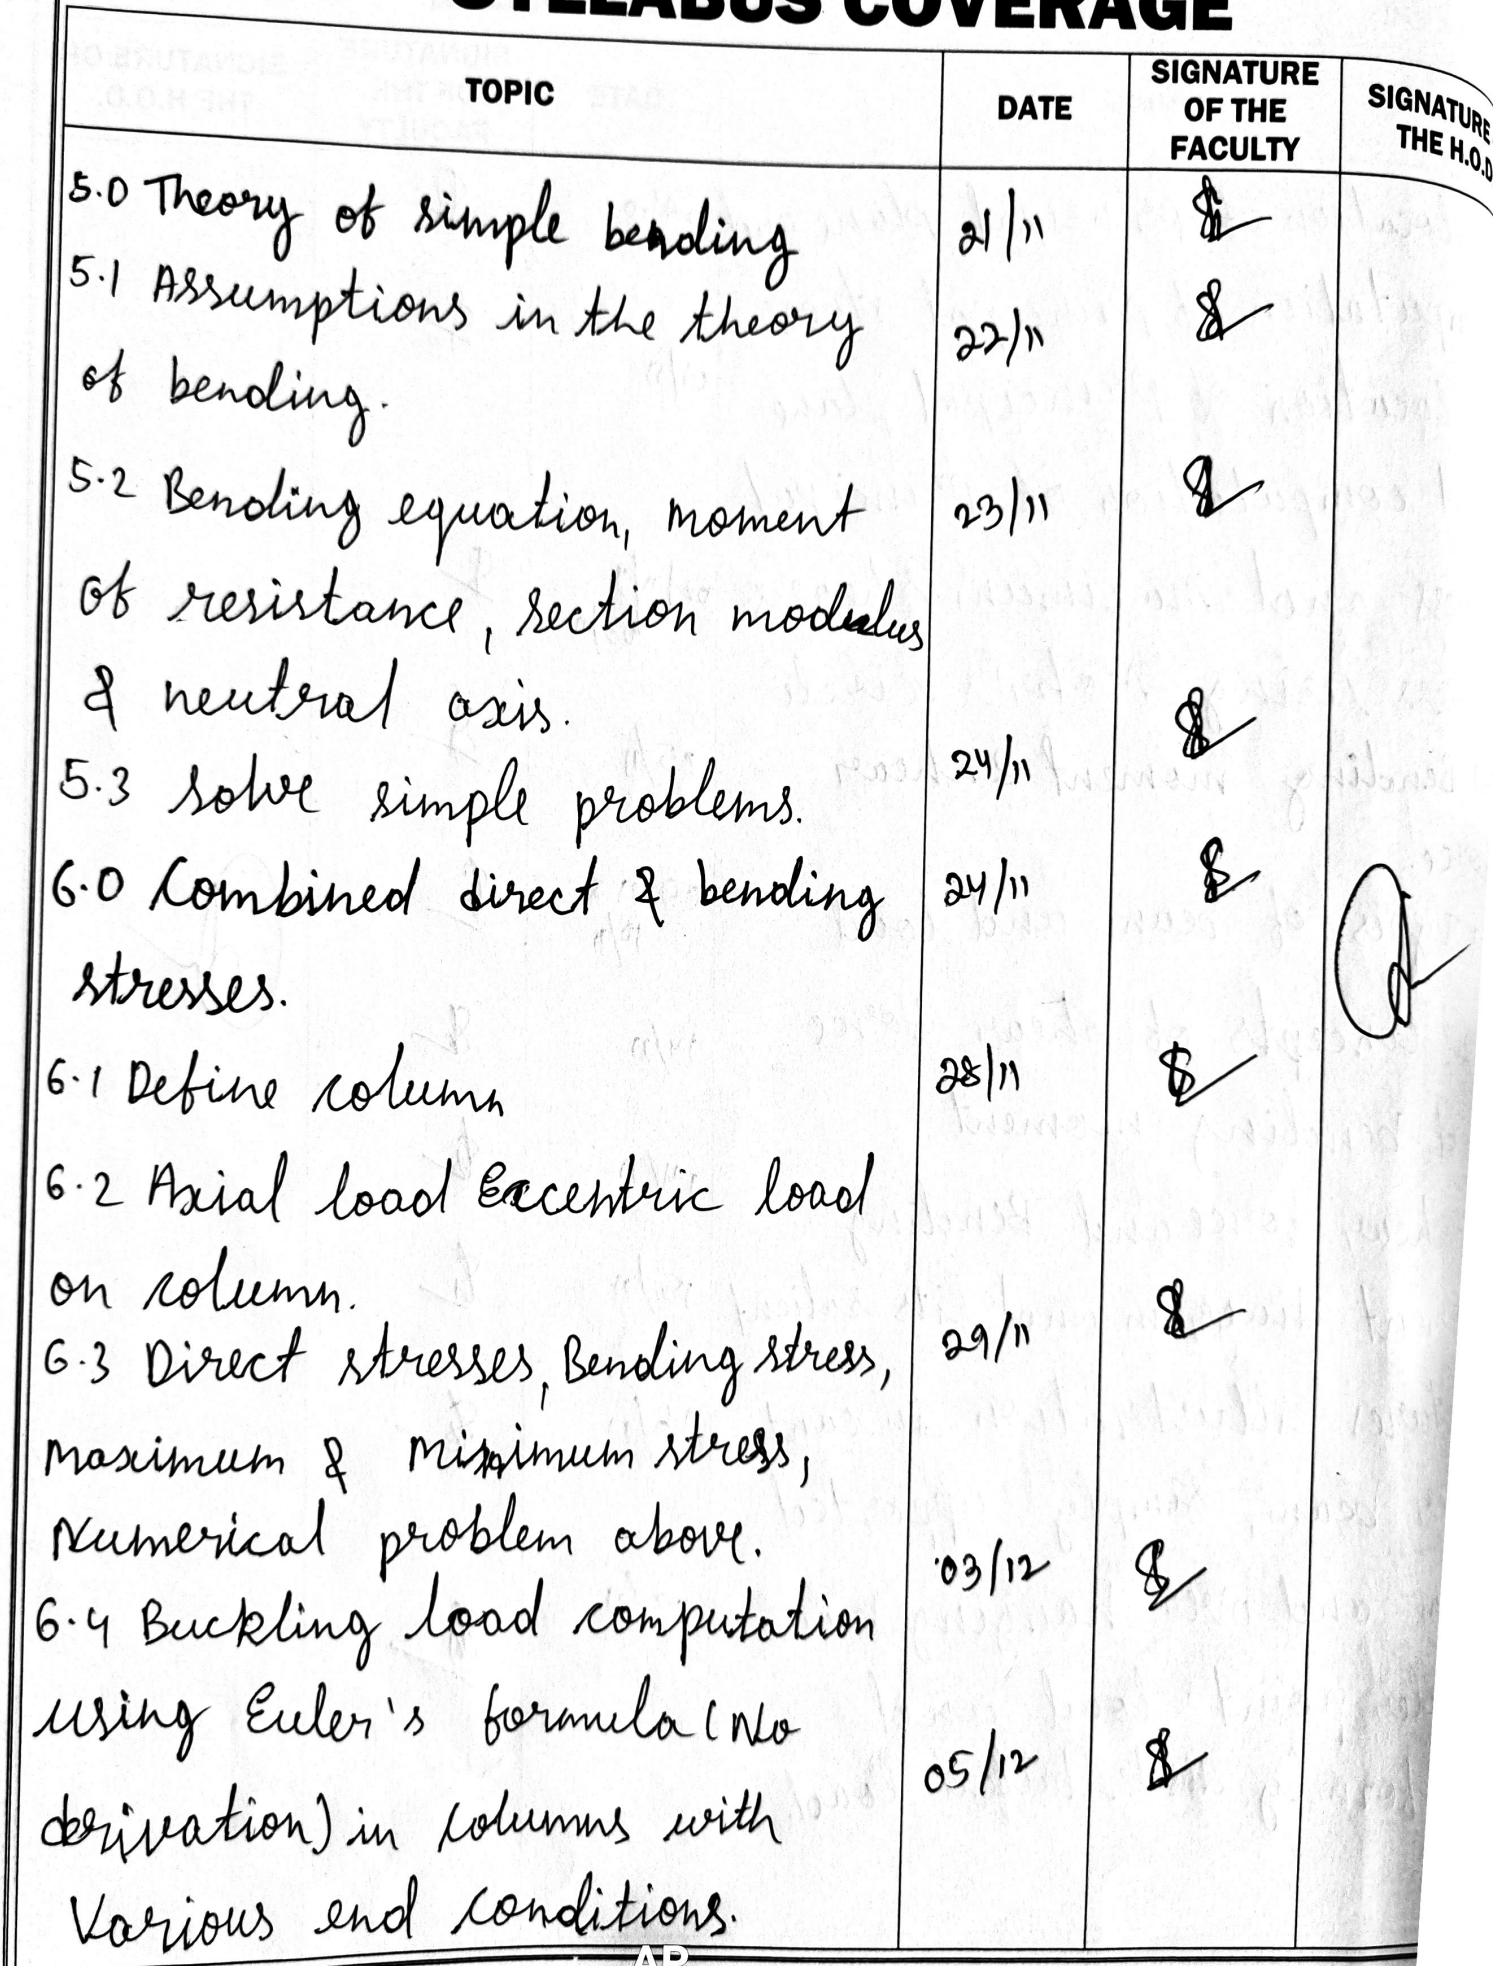 SYLLABUS COVERAGE
TOPIC
DATE
SIGNATURE
OF THE
FACULTY
SIGNATURE
THE H.O.D
5.0 Theory of simple bending 21/11
5.1 Assumptions in the theory 22/11
of bending.
5.2 Bending equation, moment 23/11
of resistance, section modulus
& neutral axis.
5.3 solve simple problems. 24/11
6.0 Combined direct & bending 24/11
stresses.
6.1 Define column 28/11
6.2 Axial load Eccentric load
on column. 29/11
6.3 Direct stresses, Bending stress,
maximum & minimum stress,
Numerical problem above. 03/12
6.4 Buckling load computation
using Euler's formula (No 05/12
derivation) in columns with
Various end conditions.